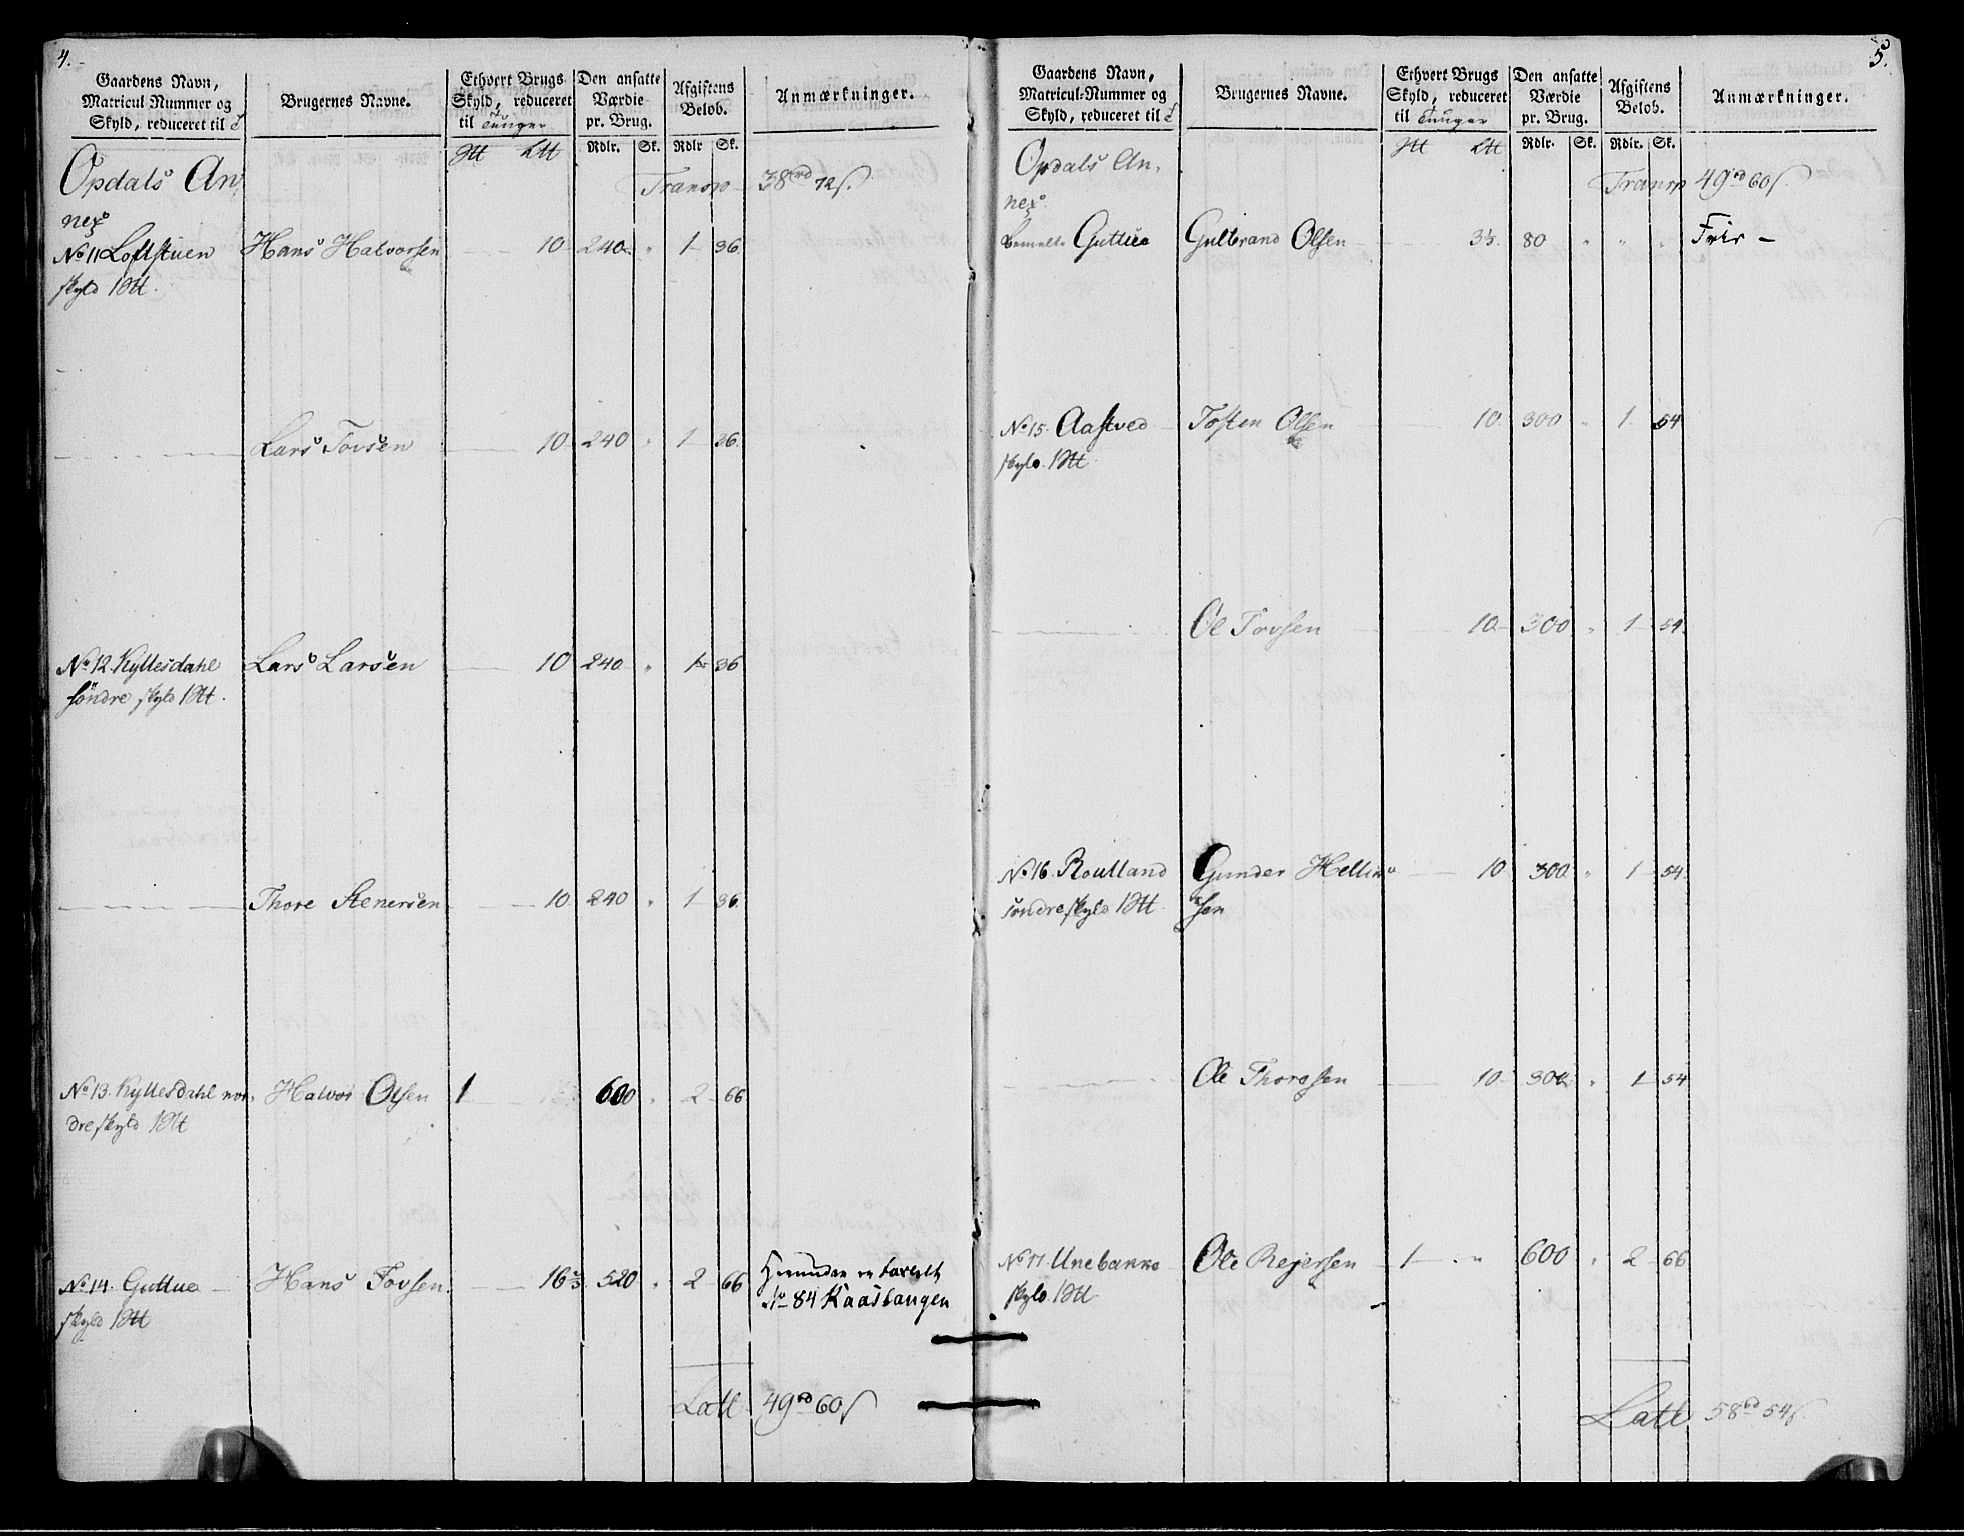 4.
Gaardens Navn, Matricul Nummer og Skyld, reduceret til
Brugernes Navne.
Ethvert Brugs Skyld, reduceret til Tunger
Den ansatte Værdie pr. Brug.
Afgiftens Beløb.
Anmærkninger.
Rdlr. Sk. Rdlr Sk.
Opdals An,
nex
Transp 38rd 72s.
No 11 Loftstuen Hans Halvorsen 10 240 " 1 36
skyld 1
Lars Tovsen 10 240 " 1 36.
No 12 Kyllesdahl Lars Larsen 10 240 " 1 36
söndre skyld 1
Thore Stenersen 10 240 " 1 36
No 13. Kyllesdahl nor, Halvor Olsen 1 600 " 2 66
dre skyld 1
No 14. Guttue Hans Tovsen 16 2/3 520 " 2 66
skyld 1
No 84 Kaaslangen
Latl 49rd 60s
5.
Gaardens Navn, Matricul-Nummer og Skyld, reduceret til
Brugernes Navne.
Ethvert Brugs Skyld, reduceret til Tunger
Den ansatte Værdie pr. Brug.
Afgiftens Beløb.
Anmærkninger.
Rdlr. Sk. Rdlr. Sk.
Opdals An,
nex
Transp 49rd 60s
Guttue Gulbrand Olsen 3 1/3 80 " " " Frir -
No 15 Aastved Tosten Olsen 10 300 " 1 54
skyld 1
Ole Tovsen 10 300 " 1 54.
No 16. Roulland Gunder Hellin 10 300 " 1 54
söndre skyld 1 sen
Ole Thoresen 10 300 " 1 54
No 17. Unebanke Ole Rejersen 1 " 600 " 2 66
skyld 1
Latl 58rd 54s.